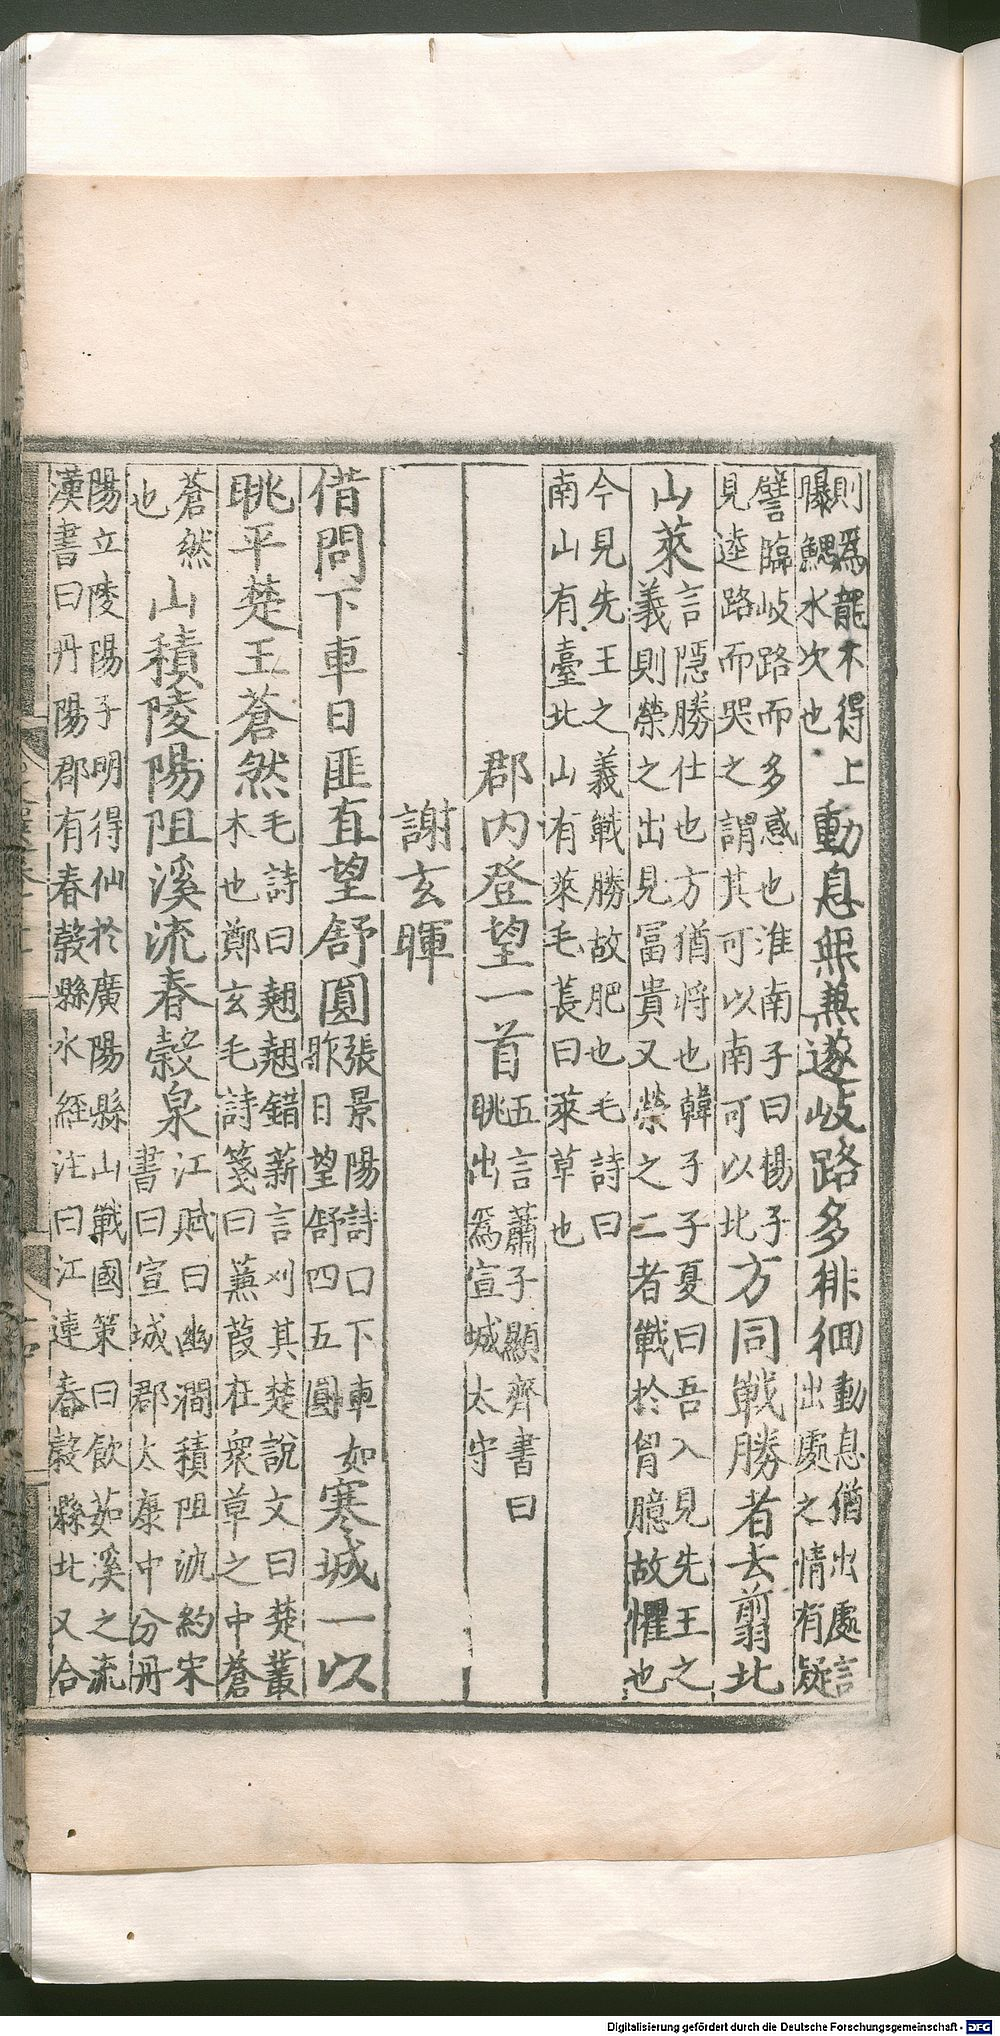 則爲龍不得上
曝鰓水次也
動息無兼遂岐路多徘徊
動息猶出處言
出處之情有疑
譬臨岐路而多感也淮南子曰楊子
見逵路而哭之謂其可以南可以北
方同戰勝者去翦北
山萊
言隱勝仕也方猶将也韓子子夏曰吾入見先王之
義則榮之出見冨貴又榮之二者戰於胷臆故懼也
今見先王之義戰勝故肥也毛詩曰
南山有臺北山有萊毛萇曰萊草也
郡内登望一首
五言蕭子顯齊書曰
眺出爲宣城太守
謝玄暉
借問下車日匪直望舒圓
張景陽詩曰下車如
昨日望舒四五圓
寒城一以
眺平楚正蒼然
毛詩曰翹翹錯薪言刈其楚說文曰楚叢
木也鄭玄毛詩箋曰蒹葭在衆草之中蒼
蒼然
也
山積陵陽阻溪流春穀泉
江賦曰幽澗積阻沈約宋
書曰宣城郡太康中分丹
陽立陵陽子明得仙於廣陽縣山戰國策曰飲茹溪之流
漢書曰丹陽郡有春穀縣水經注曰江連春穀縣北又合
Digitalisierung gefördert durch die Deutsche Forschungsgemeinschaft - DFG